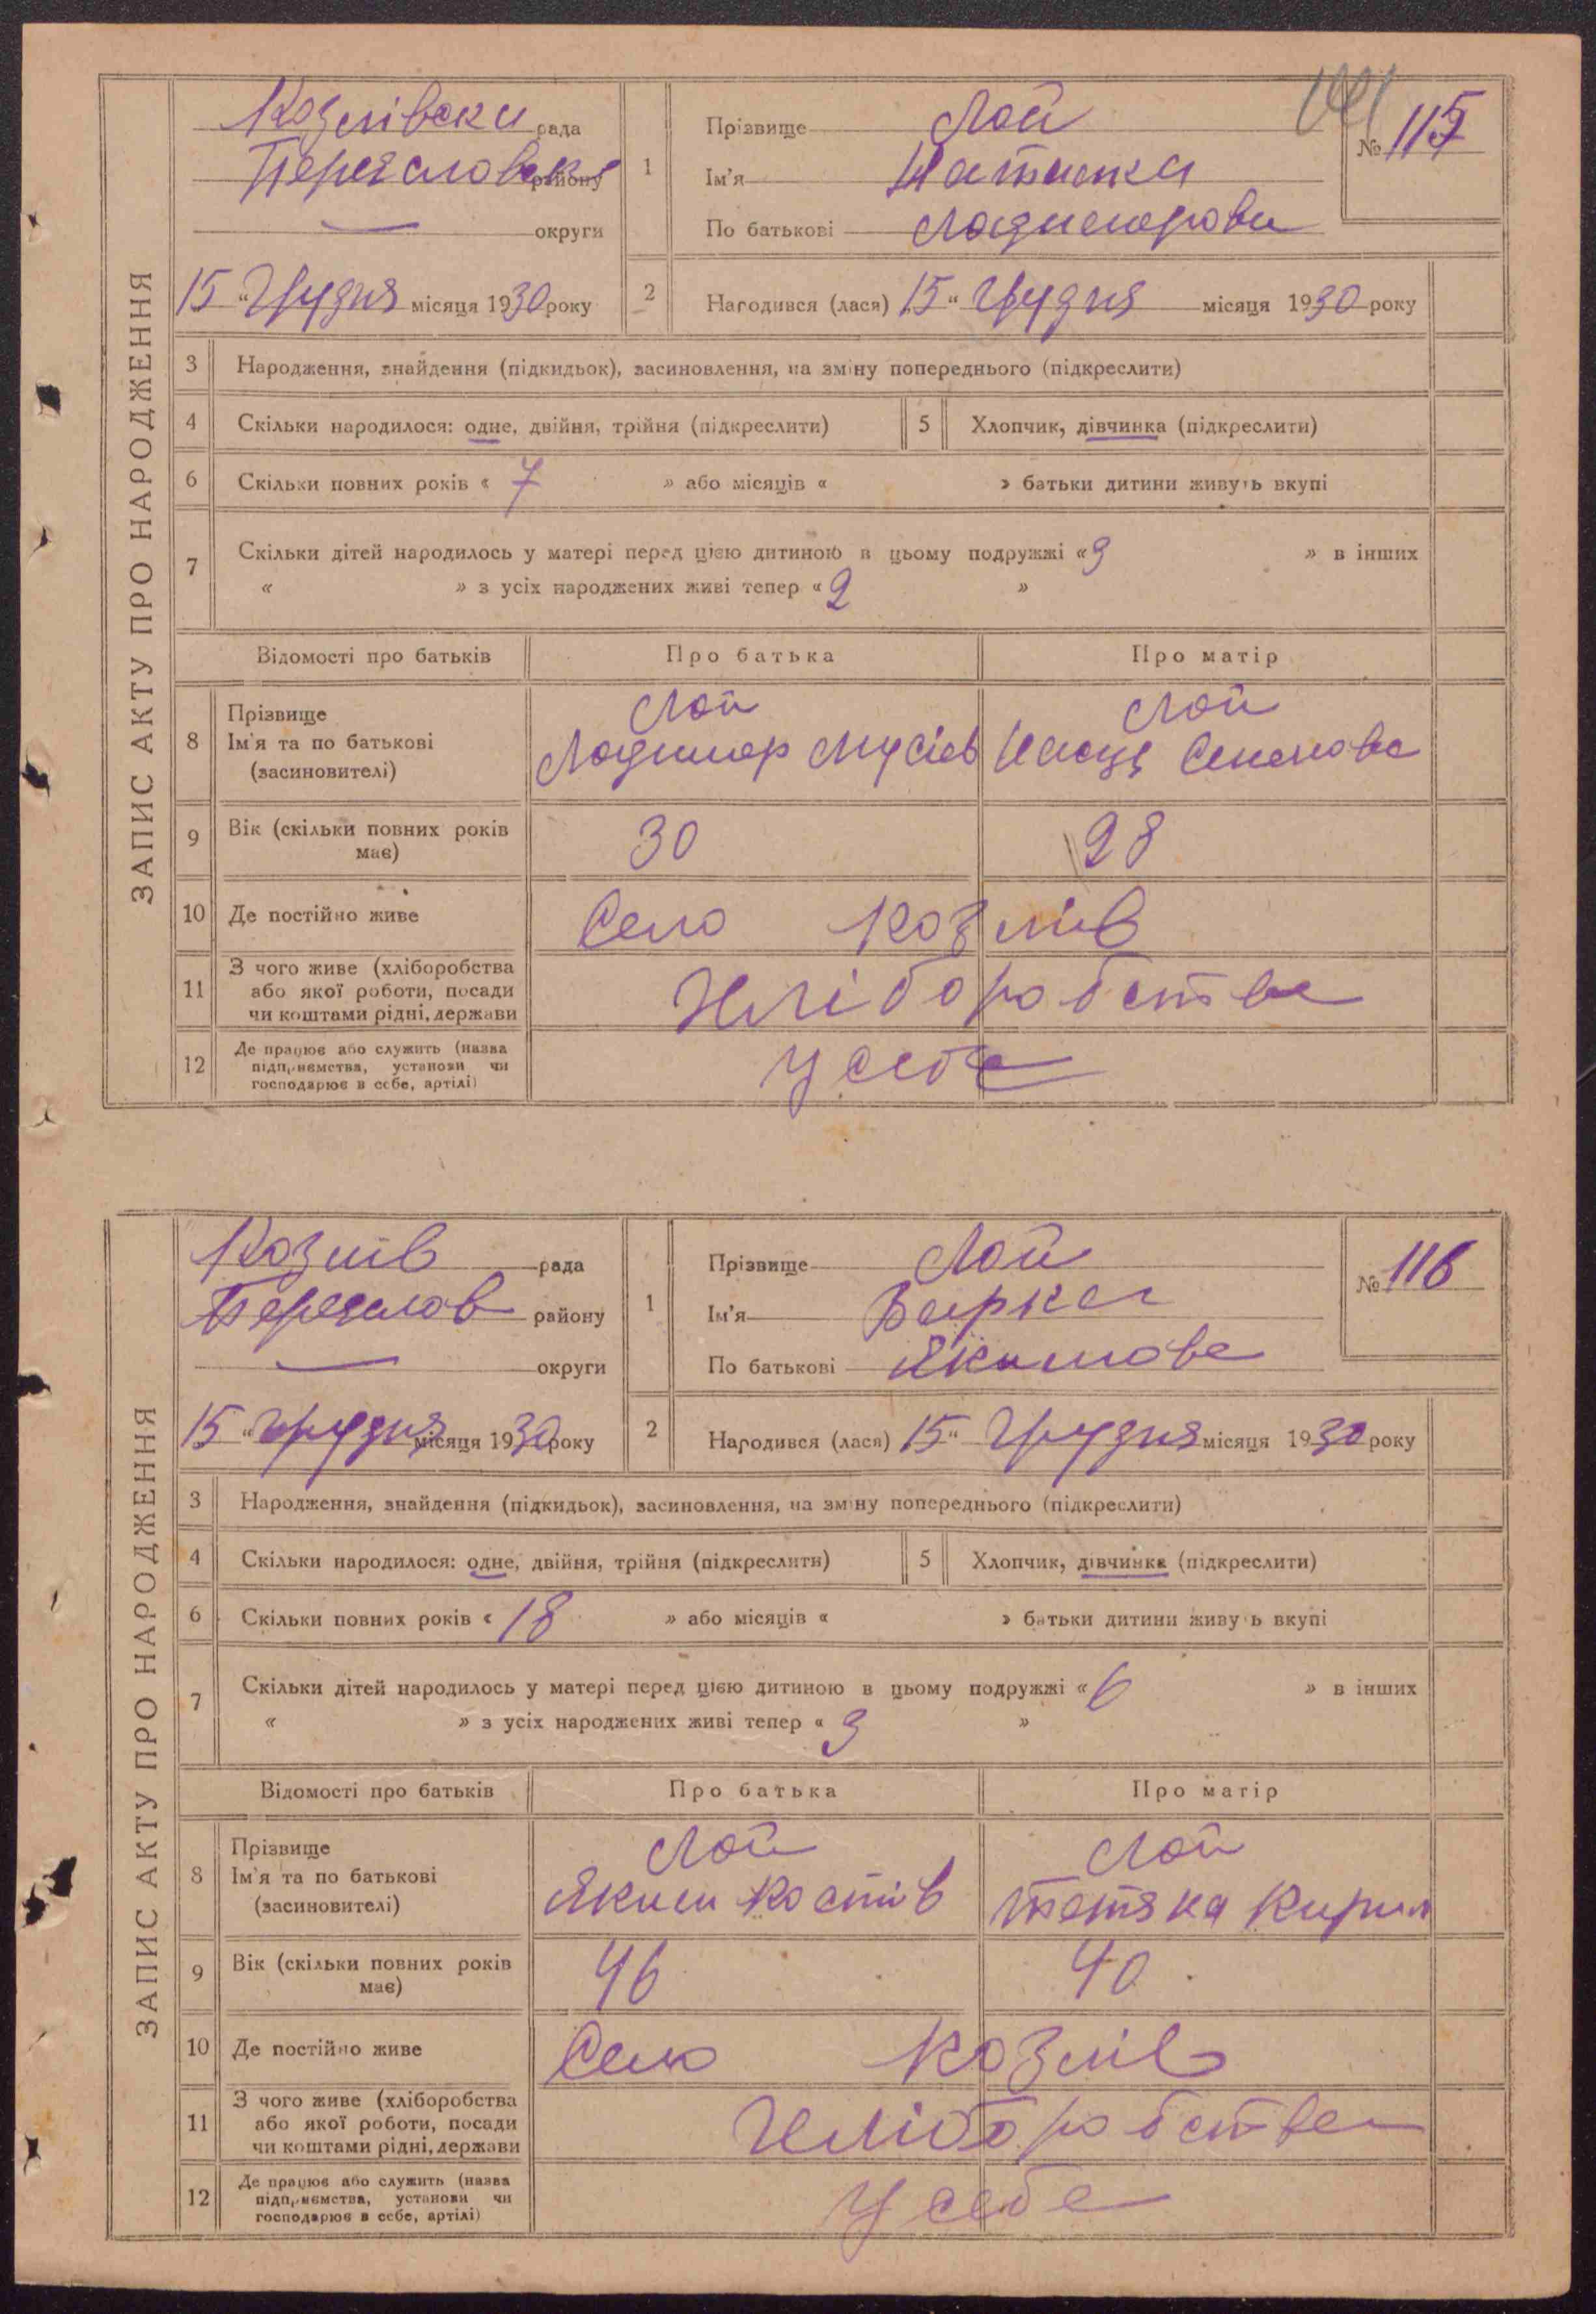 ЗАПИС АКТУ ПРО НАРОДЖЕННЯ
Козлівски рада
Переяславськ району
— округи
15 "Грудня місяця 1930 року
1 Прізвище Лой
Ім'я
По батькові Ладимерови
№ 115
2 Народився (лася) 15 " Грудня місяця 1930 року
3 Народження, знайдення (підкидьок), засиновлення, на зміну попереднього (підкреслити)
4 Скільки народилося: одне, двійня, трійня (підкреслити) 5 Хлопчик, дівчинка (підкреслити)
6 Скільки повних років « 7 » або місяців « » батьки дитини живуть вкупі
7 Скільки дітей народилось у матері перед цією дитиною в цьому подружжі « 3 » в інших
« » з усіх народжених живі тепер « 2 »
Відомості про батьків Про батька Про матір
8 Прізвище
Ім'я та по батькові
(засиновителі)
Лой
Ладимер Мусіев
Лой
Насця Семенова
9 Вік (скільки повних років
має)
30 28
10 Де постійно живе Село Козлів
11 З чого живе (хліборобства
або якої роботи, посади
чи коштами рідні, держави
Хліборобства
12 Де працює або служить (назва
підприємства, установи чи
господарює в себе, артілі)
У себе
ЗАПИС АКТУ ПРО НАРОДЖЕННЯ
Козлів рада
Переяслов району
— округи
15 "Грудня місяця 1930 року
1 Прізвище Лой
Ім'я Варка
По батькові Якимова
№ 116
2 Народився (лася) 15 " Грудня місяця 1930 року
3 Народження, знайдення (підкидьок), засиновлення, на зміну попереднього (підкреслити)
4 Скільки народилося: одне, двійня, трійня (підкреслити) 5 Хлопчик, дівчинка (підкреслити)
6 Скільки повних років « 18 » або місяців « » батьки дитини живуть вкупі
7 Скільки дітей народилось у матері перед цією дитиною в цьому подружжі « 6 » в інших
« » з усіх народжених живі тепер « 3 »
Відомості про батьків Про батька Про матір
8 Прізвище
Ім'я та по батькові
(засиновителі)
Лой
Яким Костів
Лой
Тетяна Кирил
9 Вік (скільки повних років
має)
46 40
10 Де постійно живе Село Козлів
11 З чого живе (хліборобства
або якої роботи, посади
чи коштами рідні, держави
Хліборобства
12 Де працює або служить (назва
підприємства, установи чи
господарює в себе, артілі)
У себе